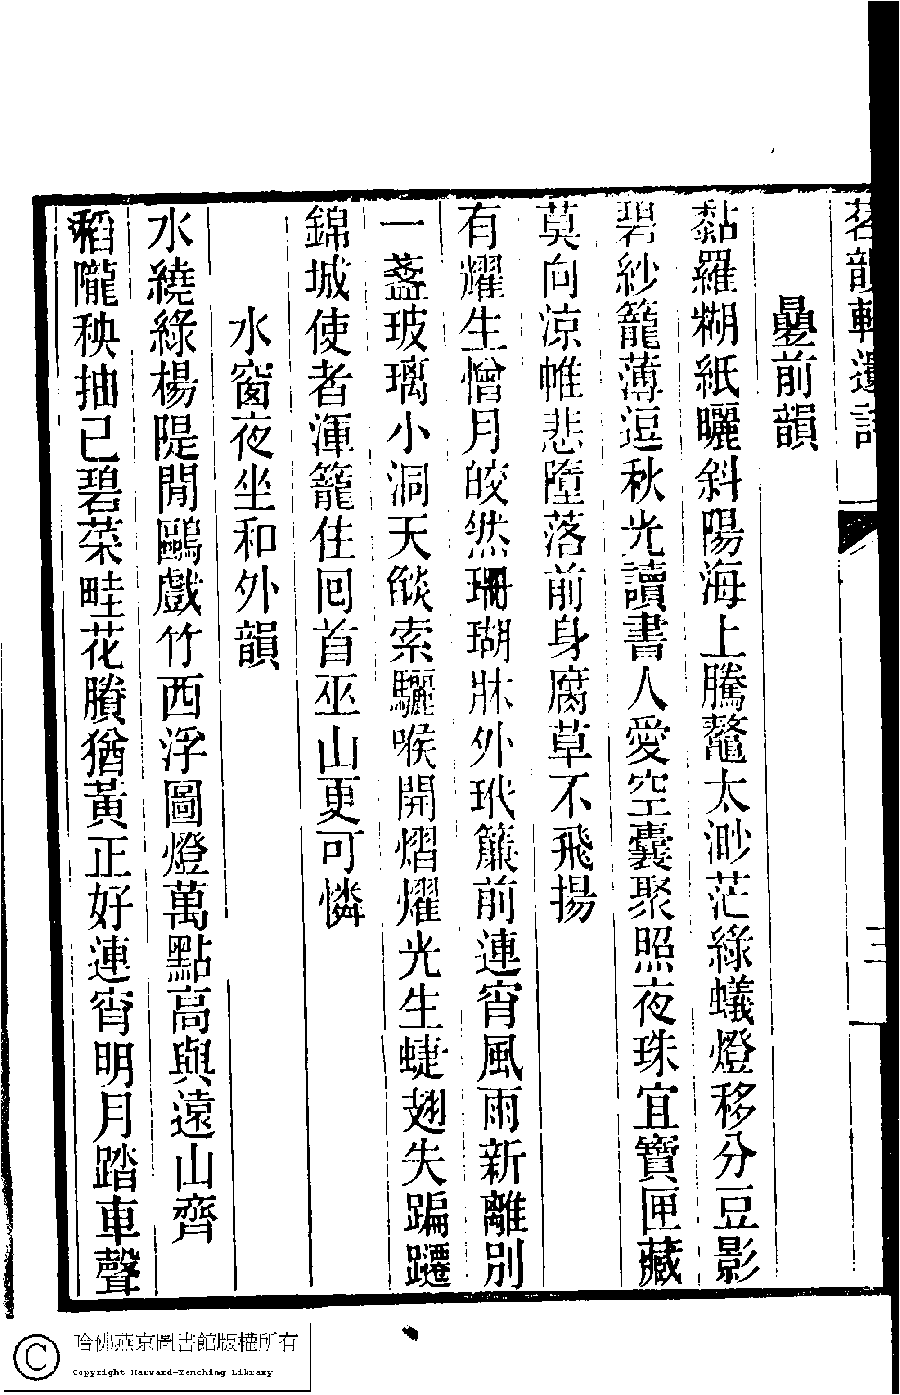 茗韻軒遺詩
三
疊前韻
黏羅糊紙曬斜陽海上騰鼇太渺茫綠蟻燈移分豆影
碧紗籠薄逗秋光讀書人愛空囊聚照夜珠宜寶匣藏
莫向凉帷悲墮落前身腐草不飛揚
有耀生憎月皎然珊瑚牀外玳簾前連宵風雨新離別
一盞玻璃小洞天餤索驪喉開熠燿光生蜨翅失蹁躚
錦城使者渾籠住囘首巫山更可憐
水窗夜坐和外韻
水繞綠楊隄閒鷗戲竹西浮圖燈萬點高與遠山齊
稻隴秧抽已碧菜畦花賸猶黃正好連宵明月踏車聲
哈佛燕京圖書館版權所有
Copyright Harvard-Yenching Library